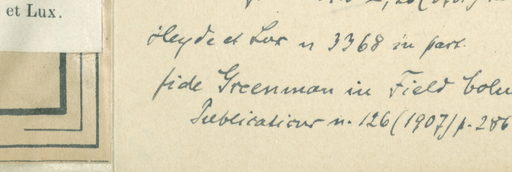 et Lux.
Heyde et Lux n 3368 in part.
fide Greenman in Field Colu
Publications n. 126 (1907) p. 286